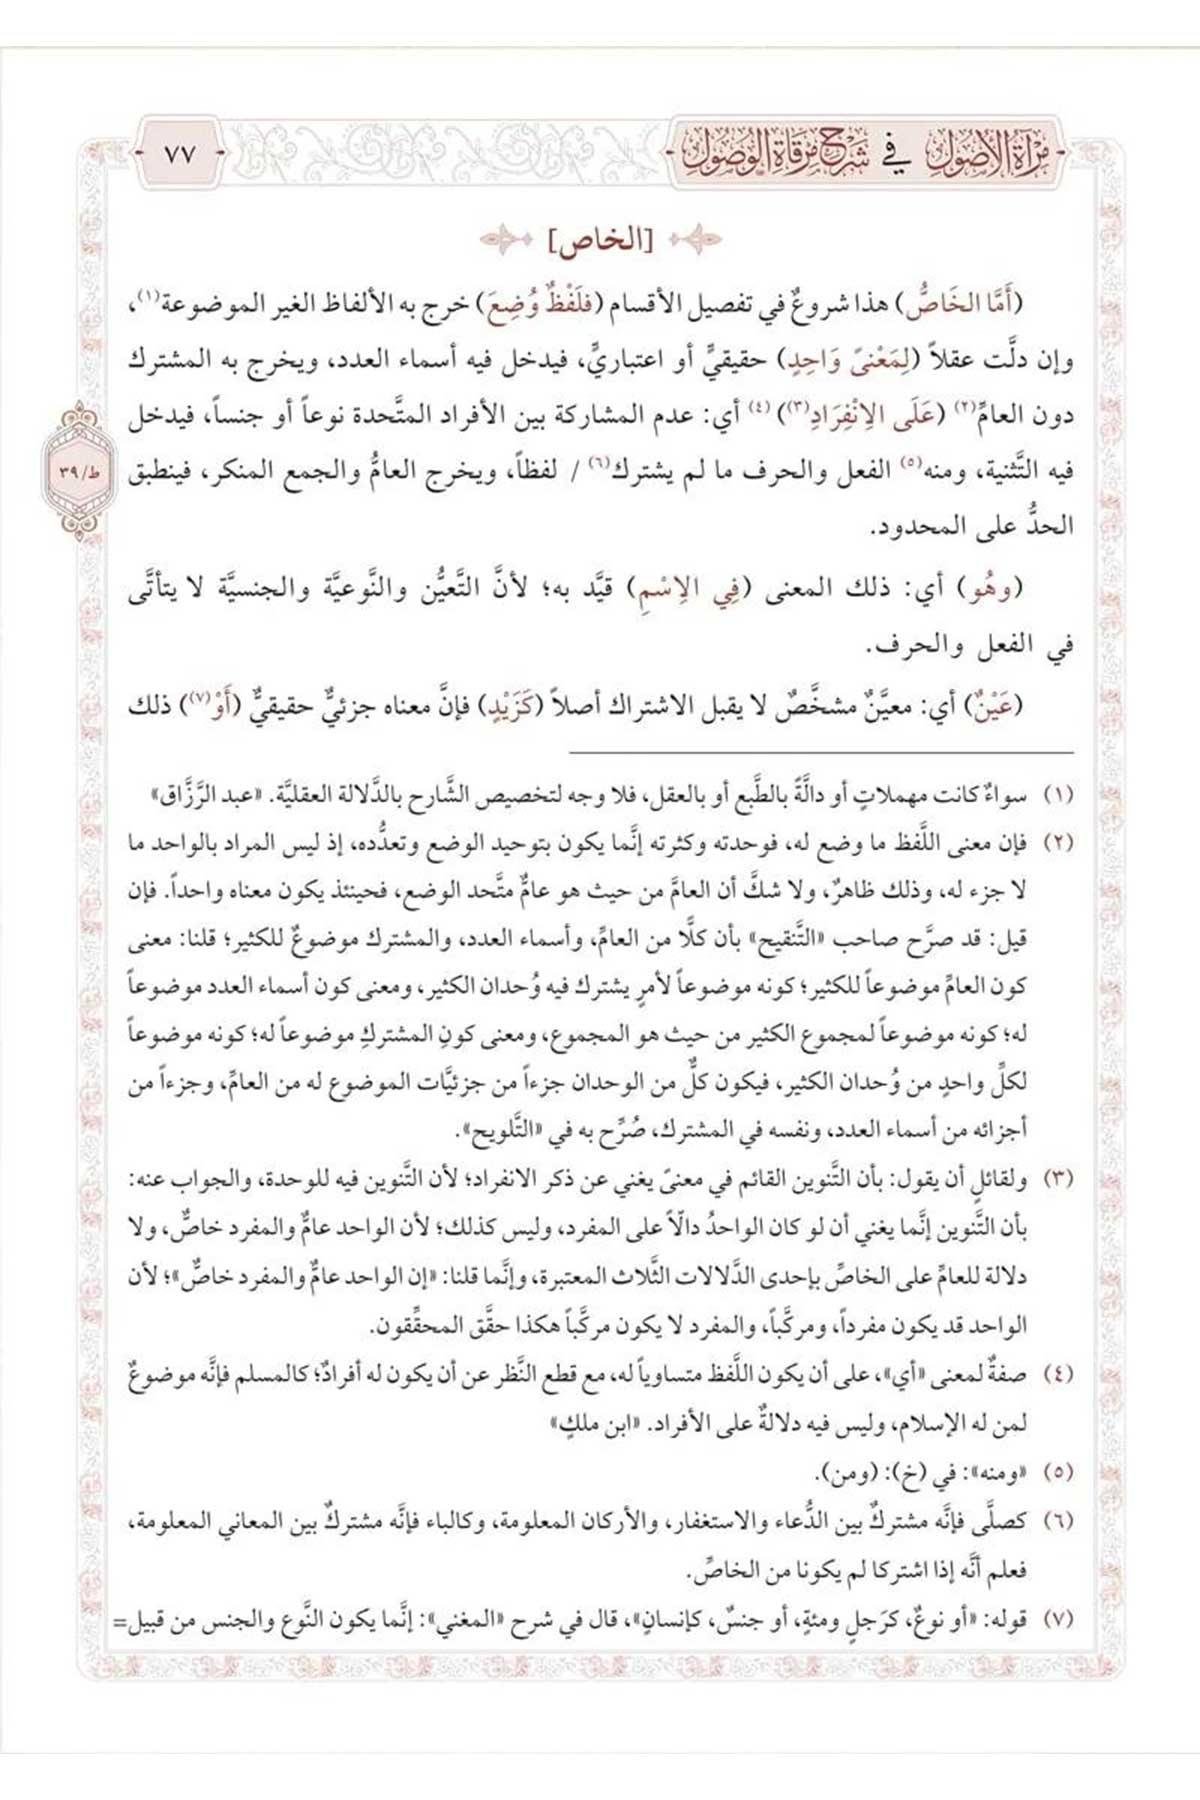 مرآة الأصول في شرح مرقاة الوصول
٧٧
[الخاص]
(أَمَّا الخَاصُّ) هذا شروعٌ في تفصيل الأقسام (فلَفْظٌ وُضِعَ) خرج به الألفاظ الغير الموضوعة(١)،
وإن دلَّت عقلاً (لِمَعْنىً وَاحِدٍ) حقيقيٍّ أو اعتباريٍّ، فيدخل فيه أسماء العدد، ويخرج به المشترك
دون العامِّ(٢) (عَلَى الاِنْفِرَادِ(٣)) (٤) أي: عدم المشاركة بين الأفراد المتَّحدة نوعاً أو جنساً، فيدخل
فيه التَّثنية، ومنه(٥) الفعل والحرف ما لم يشترك(٦) / لفظاً، ويخرج العامُّ والجمع المنكر، فينطبق
ط/٣٩
الحدُّ على المحدود.
(وهُو) أي: ذلك المعنى (فِي الاِسْمِ) قيَّد به؛ لأنَّ التَّعيُّن والنَّوعيَّة والجنسيَّة لا يتأتَّى
في الفعل والحرف.
(عَيْنٌ) أي: معيَّنٌ مشخَّصٌ لا يقبل الاشتراك أصلاً (كَزَيْدٍ) فإنَّ معناه جزئيٌّ حقيقيٌّ (أَوْ(٧)) ذلك
(١) سواءٌ كانت مهملاتٍ أو دالَّةً بالطَّبع أو بالعقل، فلا وجه لتخصيص الشَّارح بالدَّلالة العقليَّة. «عبد الرَّزَّاق»
(٢) فإن معنى اللَّفظ ما وضع له، فوحدته وكثرته إنَّما يكون بتوحيد الوضع وتعدُّده، إذ ليس المراد بالواحد ما
لا جزء له، وذلك ظاهرٌ، ولا شكَّ أن العامَّ من حيث هو عامٌّ متَّحد الوضع، فحينئذ يكون معناه واحداً. فإن
قيل: قد صرَّح صاحب «التَّنقيح» بأن كلًّا من العامِّ، وأسماء العدد، والمشترك موضوعٌ للكثير؛ قلنا: معنى
كون العامِّ موضوعاً للكثير؛ كونه موضوعاً لأمرٍ يشترك فيه وُحدان الكثير، ومعنى كون أسماء العدد موضوعاً
له؛ كونه موضوعاً لمجموع الكثير من حيث هو المجموع، ومعنى كونِ المشتركِ موضوعاً له؛ كونه موضوعاً
لكلِّ واحدٍ من وُحدان الكثير، فيكون كلٌّ من الوحدان جزءاً من جزئيَّات الموضوع له من العامِّ، وجزءاً من
أجزائه من أسماء العدد، ونفسه في المشترك، صُرِّح به في «التَّلويح».
(٣) ولقائلٍ أن يقول: بأن التَّنوين القائم في معنىً يغني عن ذكر الانفراد؛ لأن التَّنوين فيه للوحدة، والجواب عنه:
بأن التَّنوين إنَّما يغني أن لو كان الواحدُ دالّاً على المفرد، وليس كذلك؛ لأن الواحد عامٌّ والمفرد خاصٌّ، ولا
دلالة للعامِّ على الخاصِّ بإحدى الدَّلالات الثَّلاث المعتبرة، وإنَّما قلنا: «إن الواحد عامٌّ والمفرد خاصٌّ»؛ لأن
الواحد قد يكون مفرداً، ومركَّباً، والمفرد لا يكون مركَّباً هكذا حقَّق المحقِّقون.
(٤) صفةٌ لمعنى «أي»، على أن يكون اللَّفظ متساوياً له، مع قطع النَّظر عن أن يكون له أفرادٌ؛ كالمسلم فإنَّه موضوعٌ
لمن له الإسلام، وليس فيه دلالةٌ على الأفراد. «ابن ملكٍ»
(٥) «ومنه»: في (خ): (ومن).
(٦) كصلَّى فإنَّه مشتركٌ بين الدُّعاء والاستغفار، والأركان المعلومة، وكالباء فإنَّه مشتركٌ بين المعاني المعلومة،
فعلم أنَّه إذا اشتركا لم يكونا من الخاصِّ.
(٧) قوله: «أو نوعٌ، كرَجلٍ ومئةٍ، أو جنسٌ، كإنسانٍ»، قال في شرح «المغني»: إنَّما يكون النَّوع والجنس من قبيل=